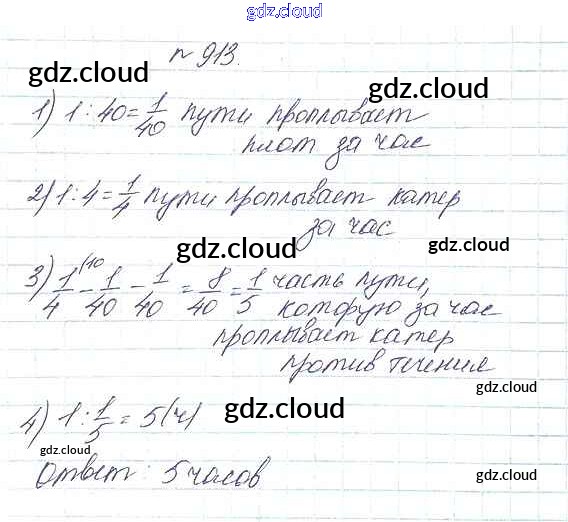 gdz.cloud
№ 913.
gdz.cloud
gdz.cloud
1) 1 : 40 = 1/40 пути проплывает
плот за час
gdz.cloud
gdz.cloud
2) 1 : 4 = 1/4 пути проплывает катер
за час
gdz.cloud
gdz.cloud
3) 1/4 (10 - 1/40 - 1/40 = 8/40 = 1/5 часть пути,
которую за час
проплывает катер
против течения
gdz.cloud
4) 1 : 1/5 = 5 (ч)
gdz.cloud
gdz.cloud
gdz.cloud
Ответ: 5 часов
gdz.cloud
gdz.cloud